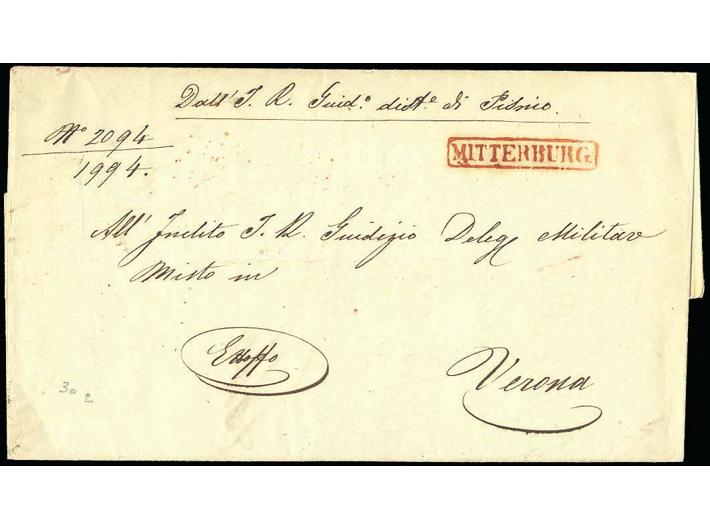 Dall' I. R. Giud.o dist.e di Pisino.
No 2094
1994.
MITTERBURG.
All' Inclito I. R. Giudizio Deleg Militar
Misto in
Verona
30